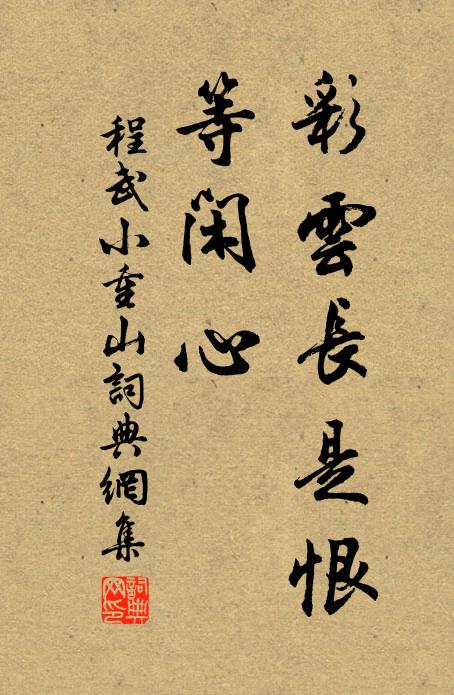 彩雲長是恨
等閑心
程武小重山詞典網集
詞典网印